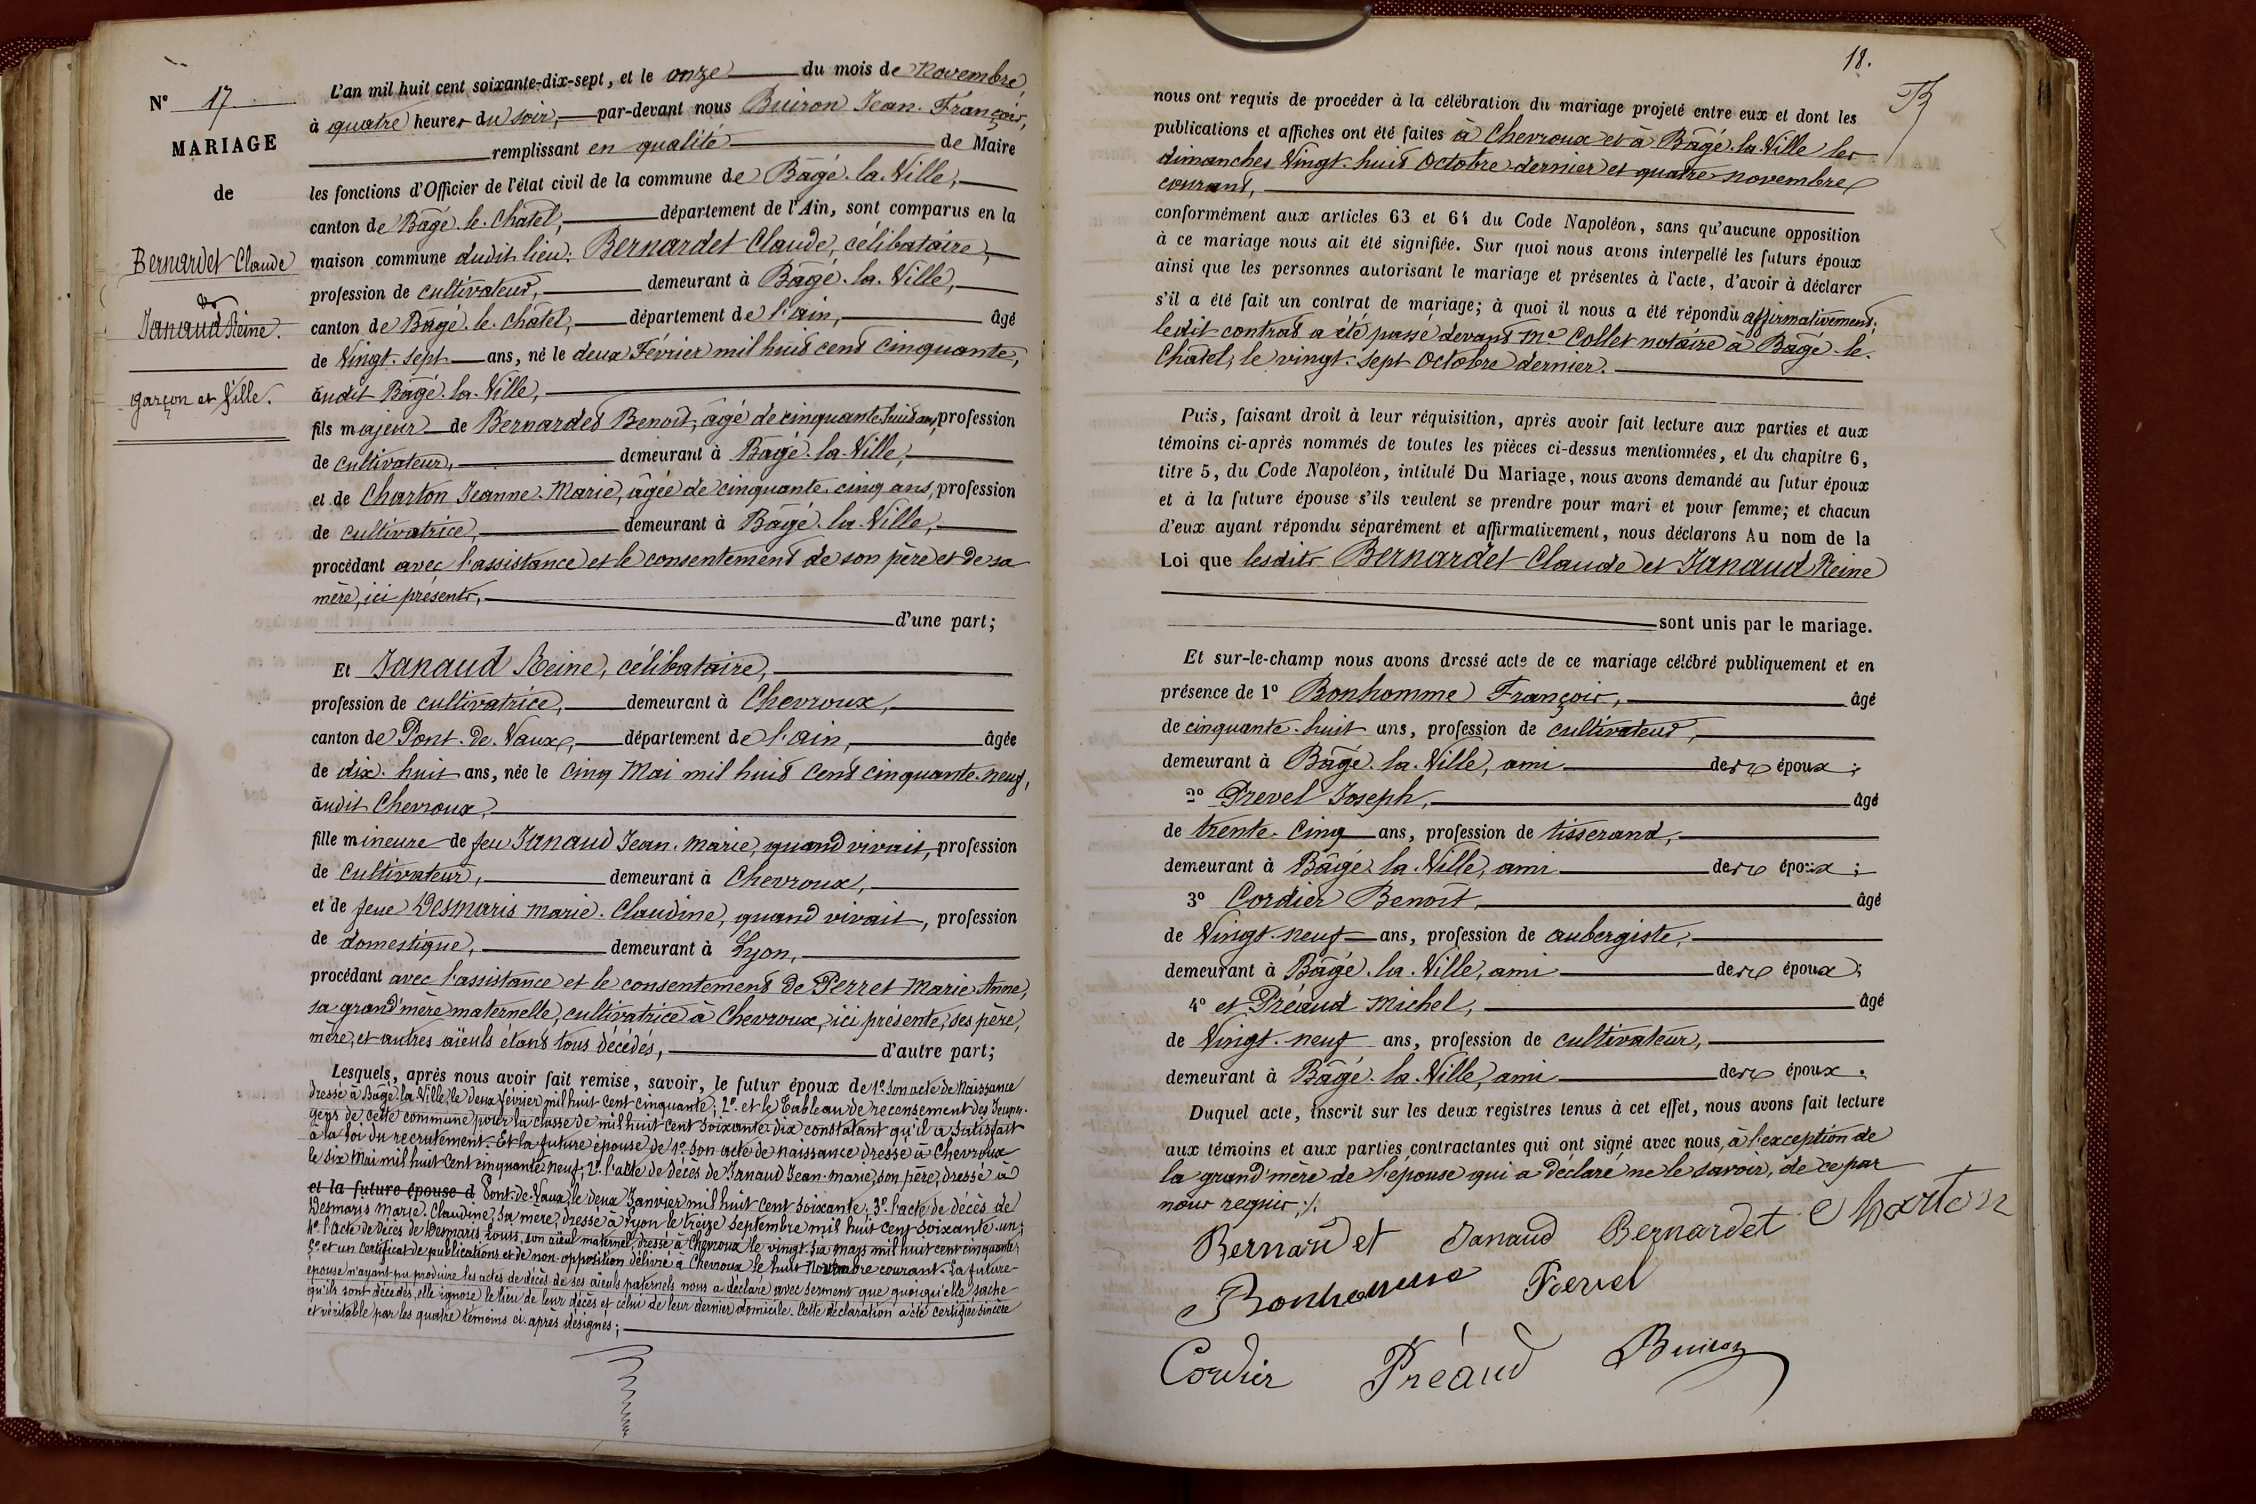 N° 17
MARIAGE
de
Bernardet Claude
&
Janaud Reine.
garçon et fille.
L'an mil huit cent soixante-dix-sept, et le onze du mois de Novembre,
à quatre heures du soir, par-devant nous Buiron Jean-François,
remplissant en qualité de Maire
les fonctions d'Officier de l'état civil de la commune de Bâgé-la-Ville,
canton de Bâgé-le-Châtel, département de l'Ain, sont comparus en la
maison commune dudit lieu: Bernardet Claude, célibataire,
profession de cultivateur, demeurant à Bâgé-la-Ville,
canton de Bâgé-le-Châtel, département de l'ain, âgé
de Vingt-sept ans, né le deux Février mil huit cent cinquante,
audit Bâgé-la-Ville,
fils majeur de Bernardet Benoit, âgé de cinquante-huit ans, profession
de cultivateur, demeurant à Bâgé-la-Ville,
et de Charton Jeanne-Marie, âgée de cinquante-cinq ans, profession
de cultivatrice, demeurant à Bâgé-la-Ville,
procédant avec l'assistance et le consentement de son père et de sa
mère, ici présents,
d'une part;
Et Janaud Reine, célibataire,
profession de cultivatrice, demeurant à Chevroux,
canton de Pont-de-Vaux, département de l'ain, âgée
de dix-huit ans, née le cinq Mai mil huit cent cinquante-neuf,
audit Chevroux,
fille mineure de feu Janaud Jean-Marie, quand vivait, profession
de cultivateur, demeurant à Chevroux,
et de feue Desmaris Marie-Claudine, quand vivait, profession
de domestique, demeurant à Lyon,
procédant avec l'assistance et le consentement de Perret Marie Anne,
sa grand'mère maternelle, cultivatrice à Chevroux, ici présente, ses père,
mère, et autres aïeuls étant tous décédés, d'autre part;
Lesquels, après nous avoir fait remise, savoir, le futur époux de 1° son acte de Naissance
dressé à Bâgé-la-Ville, le deux février mil huit cent cinquante; 2° et le Tableau de recensement des jeunes-
gens de cette commune pour la classe de mil huit cent soixante-dix constatant qu'il a satisfait
à la loi du recrutement. Et la future épouse, de 1° son acte de naissance dressé à Chevroux
le six Mai mil huit cent cinquante neuf; 2° l'acte de décès de Janaud Jean-Marie, son père, dressé à
et la future épouse d Pont-de-Vaux, le deux Janvier mil huit cent soixante; 3° l'acte de décès de
Desmaris Marie-Claudine, sa mère, dressé à Lyon le treize septembre mil huit cent soixante-un;
4° l'acte de décès de Desmaris Louis, son aïeul maternel, dressé à Chevroux le vingt-six mars mil huit cent cinquante;
5° et un certificat de publications et de non-opposition délivré à Chevroux le huit Novembre courant. La future
épouse n'ayant pu produire les actes de décès de ses aïeuls paternels nous a déclaré avec serment que quoiqu'elle sache
qu'ils sont décédés, elle ignore le lieu de leur décès et celui de leur dernier domicile. Cette déclaration a été certifiée sincère
et véritable par les quatre témoins ci-après désignés;
18.
nous ont requis de procéder à la célébration du mariage projeté entre eux et dont les
publications et affiches ont été faites à Chevroux et à Bâgé-la-Ville les
dimanches Vingt-huit Octobre dernier et quatre novembre
courant,
conformément aux articles 63 et 64 du Code Napoléon, sans qu'aucune opposition
à ce mariage nous ait été signifiée. Sur quoi nous avons interpellé les futurs époux
ainsi que les personnes autorisant le mariage et présentes à l'acte, d'avoir à déclarer
s'il a été fait un contrat de mariage; à quoi il nous a été répondu affirmativement;
ledit contrat a été passé devant Me Collet notaire à Bâgé-le-
Châtel, le vingt-sept Octobre dernier.
Puis, faisant droit à leur réquisition, après avoir fait lecture aux parties et aux
témoins ci-après nommés de toutes les pièces ci-dessus mentionnées, et du chapitre 6,
titre 5, du Code Napoléon, intitulé Du Mariage, nous avons demandé au futur époux
et à la future épouse s'ils veulent se prendre pour mari et pour femme; et chacun
d'eux ayant répondu séparément et affirmativement, nous déclarons Au nom de la
Loi que lesdits Bernardet Claude et Janaud Reine
sont unis par le mariage.
Et sur-le-champ nous avons dressé acte de ce mariage célébré publiquement et en
présence de 1° Bonhomme François, âgé
de cinquante-huit ans, profession de cultivateur,
demeurant à Bâgé-la-Ville, ami des époux;
2° Prevel Joseph, âgé
de trente-cinq ans, profession de tisserand,
demeurant à Bâgé-la-Ville, ami des époux;
3° Cordier Benoit, âgé
de Vingt-neuf ans, profession de aubergiste,
demeurant à Bâgé-la-Ville, ami des époux;
4° et Préaud Michel, âgé
de Vingt-neuf ans, profession de cultivateur,
demeurant à Bâgé-la-Ville, ami des époux.
Duquel acte, inscrit sur les deux registres tenus à cet effet, nous avons fait lecture
aux témoins et aux parties contractantes qui ont signé avec nous, à l'exception de
la grand'mère de l'épouse qui a déclaré ne le savoir, de ce par
nous requis./.
Bernardet Janaud Bernardet Charton
Bonhomme Prevel
Cordier Préaud Buiron